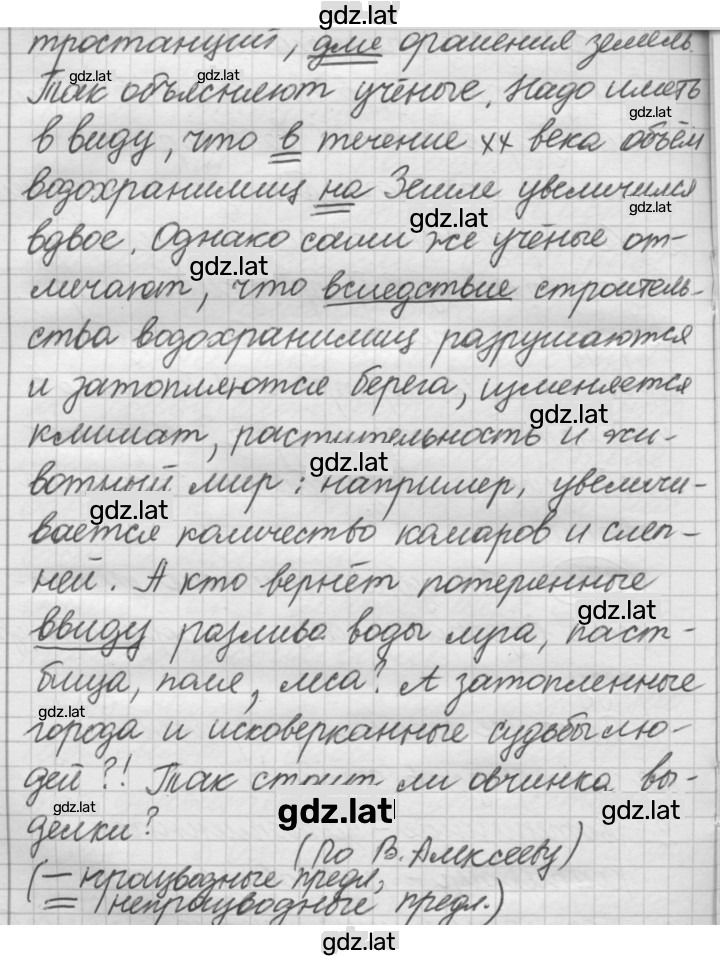 gdz.lat
тростанций, для орашения земель.
gdz.lat gdz.lat
Так объясняют учёные. Надо иметь
gdz.lat
в виду, что в течение XX века объём
водохранилищ на Земле увеличился
gdz.lat gdz.lat
вдвое. Однако сами же учёные от-
gdz.lat
мечают, что вследствие строитель-
ства водохранилищ разрушаются
и затопляются берега, изменяется
gdz.lat
климат, растительность и жи-
gdz.lat
вотный мир: например, увеличи-
gdz.lat
вается количество комаров и слеп-
ней. А кто вернёт потерянные
gdz.lat
ввиду разлива воды луга, паст-
бища, поля, леса? А затопленные
gdz.lat
города и исковерканные судьбы лю-
дей?! Так стоит ли овчинка вы-
gdz.lat gdz.lat gdz.lat
делки?
(По В. Алексееву)
(— производные предл.,
= непроизводные предл.)
gdz.lat